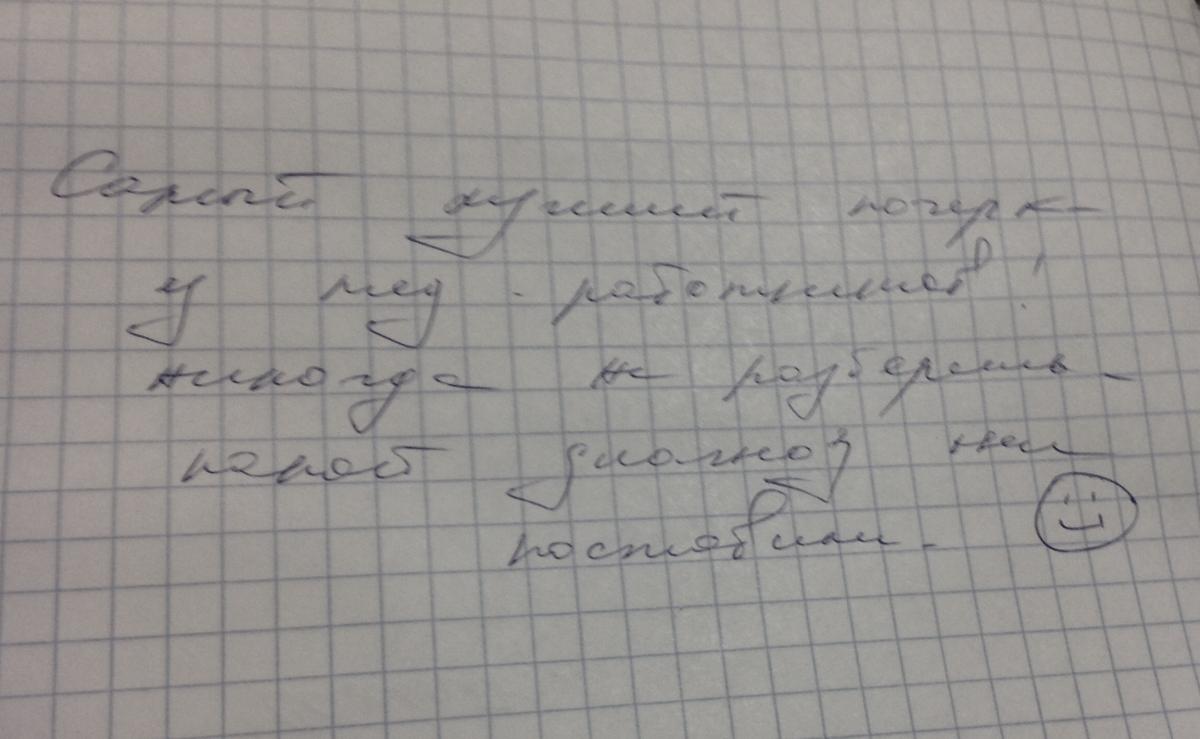 Самый худший почерк
у мед. работников!
никогда не разберешь
какой диагноз нам
поставили.